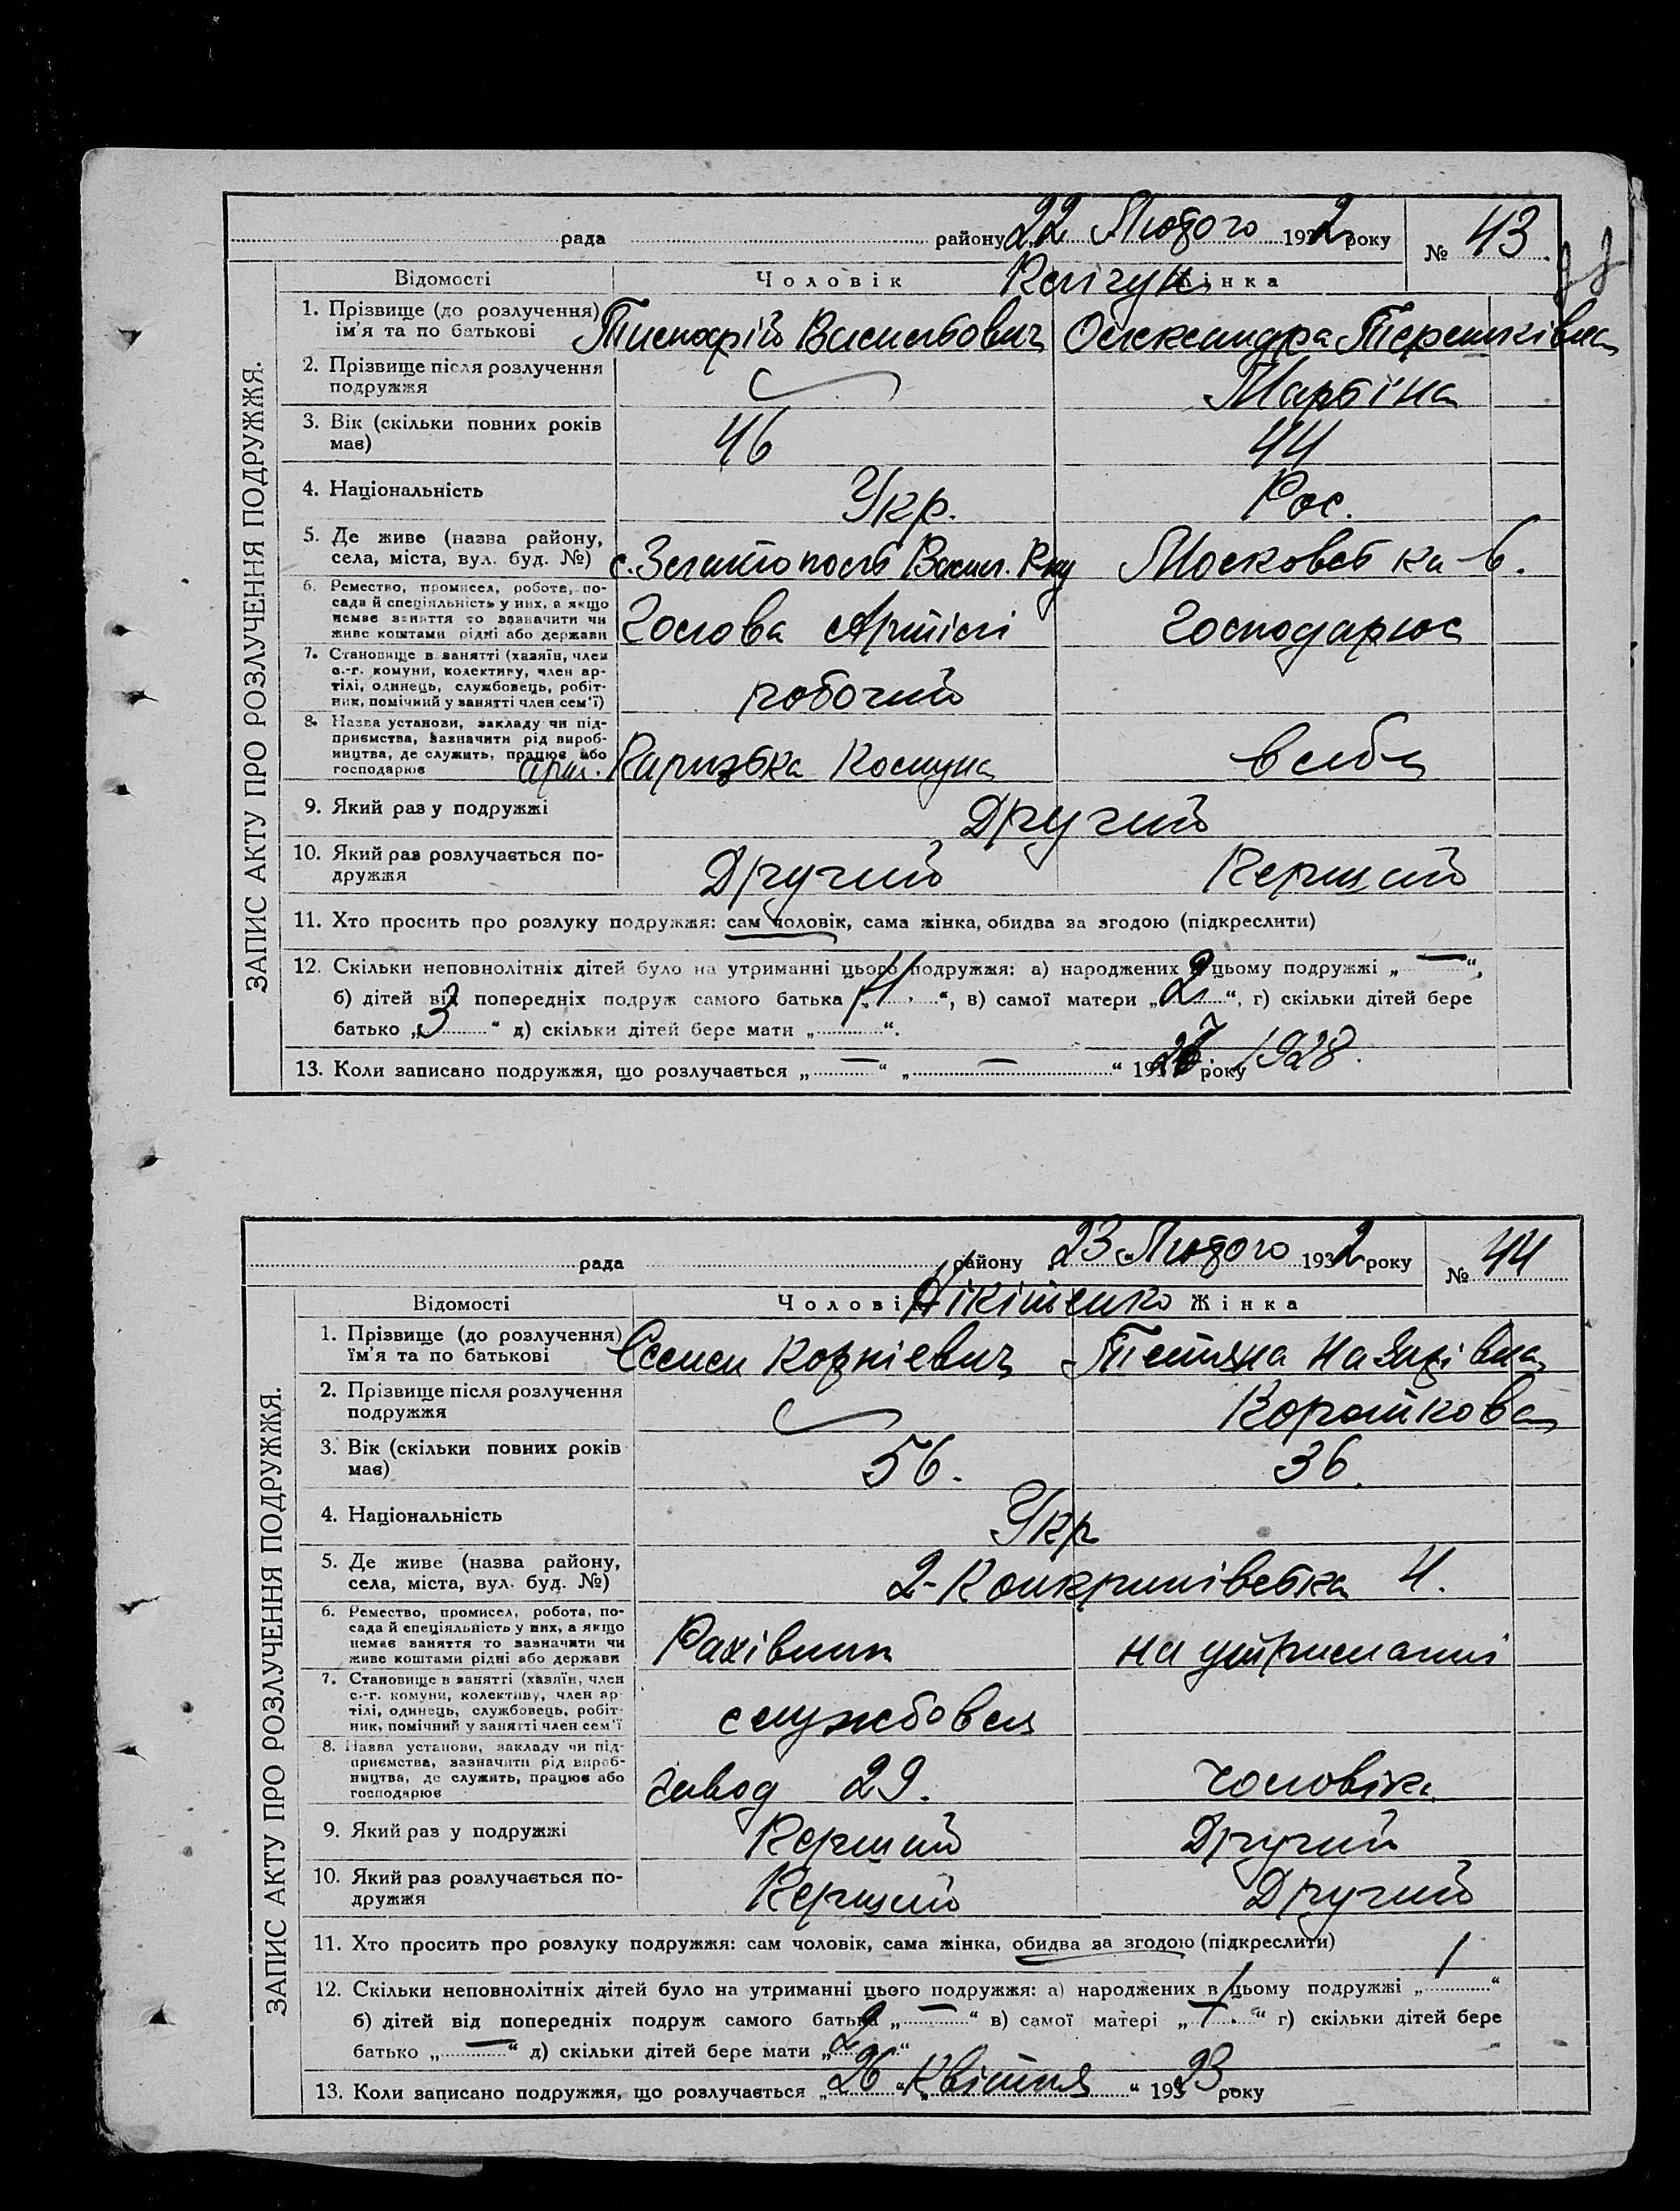 рада района 22 Лютого 1932 року № 43
Відомості Чоловік Жінка
1. Прізвище (до розлучення) ім'я та по батькові Васильович Олександра
2. Прізвище після розлучення подружжя
3. Вік (скільки повних років має) 46 44
4. Національність Укр. Рос.
5. Де живе (назва району, села, міста, вул. буд. №) Московська 6.
6. Ремество, промисел, робота, посада й спеціяльність у них, а якщо немає заняття то зазначити чи живе коштами рідні або держави Голова Артілі Господарює
7. Становище в занятті (хазяїн, член с.-г. комуни, колективу, член артілі, одинець, службовець, робітник, помічний у занятті член сем'ї) робочий
8. Назва установи, закладу чи підприємства, зазначити рід виробництва, де служить, працює або господарює арт. Паризька Комуна в себе
9. Який раз у подружжі Другий
10. Який раз розлучається подружжя Другий Перший
11. Хто просить про розлуку подружжя: сам чоловік, сама жінка, обидва за згодою (підкреслити)
12. Скільки неповнолітніх дітей було на утриманні цього подружжя: а) народжених в цьому подружжі „—“,
б) дітей від попередніх подруж самого батька „ “, в) самої матери „2“, г) скільки дітей бере
батько „3“ д) скільки дітей бере мати „ “.
13. Коли записано подружжя, що розлучається „—“ „—“ 19 року 1928.
ЗАПИС АКТУ ПРО РОЗЛУЧЕННЯ ПОДРУЖЖЯ.
рада району 23 Лютого 1932 року № 44
Відомості Чоловік Жінка
Нікітенко
1. Прізвище (до розлучення) ім'я та по батькові Корнієвич
2. Прізвище після розлучення подружжя Короткова
3. Вік (скільки повних років має) 56. 36.
4. Національність Укр
5. Де живе (назва району, села, міста, вул. буд. №) 4.
6. Ремество, промисел, робота, посада й спеціяльність у них, а якщо немає заняття то зазначити чи живе коштами рідні або держави Рахівник на утриманні
7. Становище в занятті (хазяїн, член с.-г. комуни, колективу, член артілі, одинець, службовець, робітник, помічний у занятті член сем'ї службовець
8. Назва установи, закладу чи підприємства, зазначити рід виробництва, де служить, працює або господарює завод 29. чоловіка
9. Який раз у подружжі Перший Другий
10. Який раз розлучається подружжя Перший Другий
11. Хто просить про розлуку подружжя: сам чоловік, сама жінка, обидва за згодою (підкреслити)
12. Скільки неповнолітніх дітей було на утриманні цього подружжя: а) народжених в цьому подружжі „1“
б) дітей від попередніх подруж самого батька „—“ в) самої матері „ “ г) скільки дітей бере
батько „—“ д) скільки дітей бере мати „2“
13. Коли записано подружжя, що розлучається „26“ „Квітня“ 1923 року
ЗАПИС АКТУ ПРО РОЗЛУЧЕННЯ ПОДРУЖЖЯ.